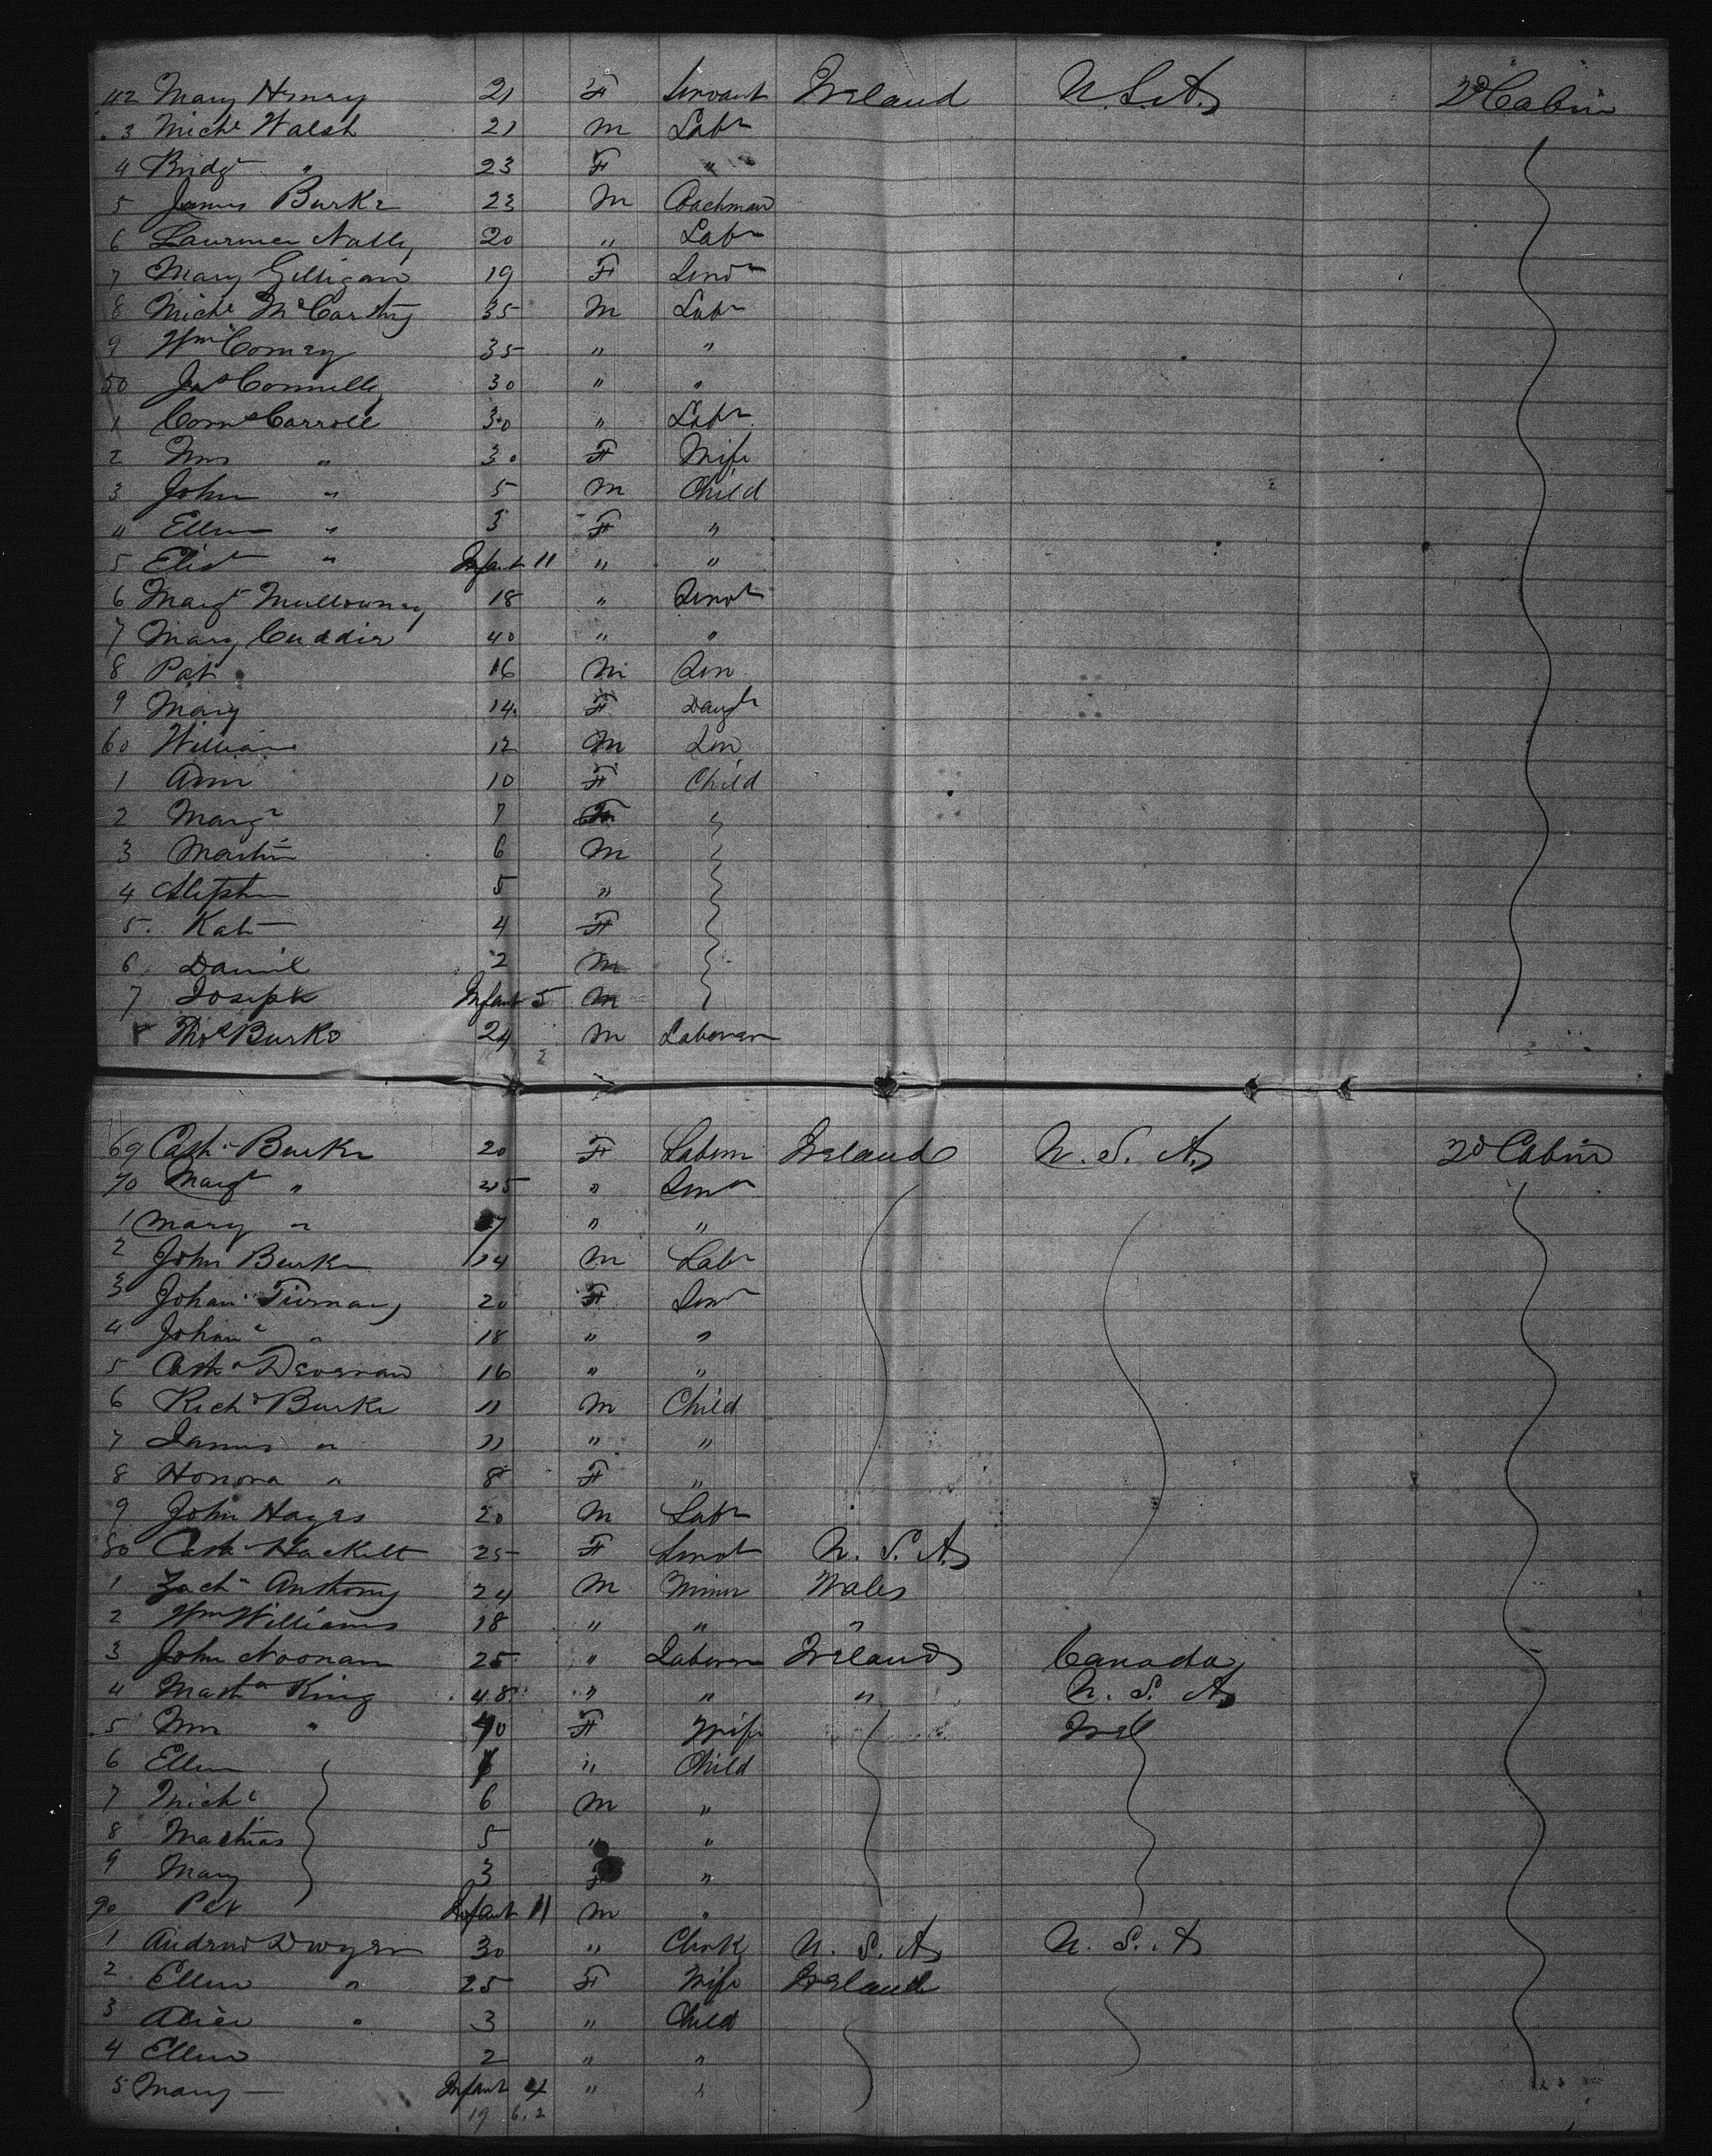 42 Mary Henry 21 F Servant Ireland U.S.A. 2d Cabin
3 Michl Walsh 21 M Labr
4 Bridgt " 23 F "
5 James Burke 23 M Coachman
6 Laurence Nally 20 " Labr
7 Mary Gilligan 19 F Servt
8 Michl McCarthy 35 M Labr
9 Wm Comey 35 " "
50 Jas Connelly 30 " "
1 Corns Carroll 30 " Labr
2 Mrs " 30 F Wife
3 John " 5 M Child
4 Ellen " 3 F "
5 Elizt " Infant 11 " "
6 Margt Mullowney 18 " Servt
7 Mary Cuddie 40 " "
8 Pat 16 M Son
9 Mary 14 F Daugh
60 William 12 M Son
1 Ann 10 F Child
2 Margt 7 F
3 Martin 6 M
4 Stephen 5 "
5 Kate 4 F
6 Daniel 2 M
7 Joseph Infant 5 M
8 Thos Burke 24 M Laborer
2
69 Cath Burke 20 F Laborer Ireland U.S.A. 2d Cabin
70 Margt " 45 " Servt
1 Mary " 17 " "
2 John Burke 14 M Labr
3 Johan Tiernay 20 F Servt
4 Johan " 18 " "
5 Cath 16 " "
6 Richd Burke 11 M Child
7 James " 11 " "
8 Honora " 8 F "
9 John Hayes 20 M Labr
80 Cath Hackett 25 F Servt U.S.A.
1 Zach Anthony 24 M Miner Wales
2 Wm Williams 18 " " "
3 John Noonan 25 " Laborer Ireland Canada
4 King 48 " " " U.S.A.
5 Mrs " 40 F Wife Irel
6 Ellen " Child
7 Michl 6 M "
8 Mathias 5 " "
9 Mary 3 F "
90 Pat Infant 11 M "
1 Andrew Dwyer 30 " Clerk U.S.A. U.S.A
2 Ellen " 25 F Wife Ireland
3 Alice " 3 " Child
4 Ellen 2 " "
5 Mary — Infant 4 " "
19 6.2